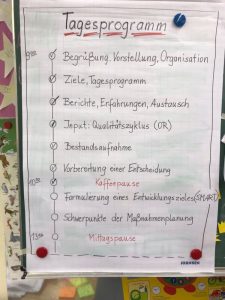 Tagesprogramm
9:00 Begrüßung, Vorstellung, Organisation
Ziele, Tagesprogramm
Berichte, Erfahrungen, Austausch
Input: Qualitätszyklus (OR)
Bestandsaufnahme
Vorbereitung einer Entscheidung
10:30 Kaffeepause
Formulierung eines Entwicklungszieles (SMART)
Schwerpunkte der Maßnahmenplanung
13:00 Mittagspause